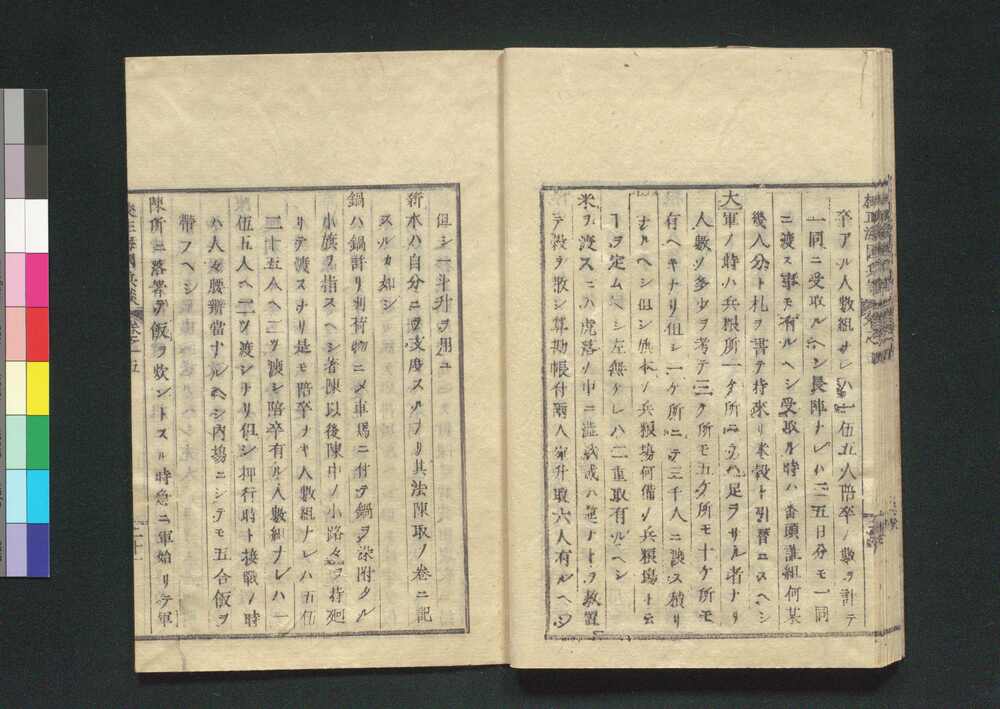 卒アル人数組ナレハ一伍五人陪卒ノ数ヲ計テ
一同ニ受取ルヘシ長陣ナレハ三五日分モ一同
ニ渡ス事モ有ルヘシ受取ル時ハ番頭誰組何某
幾人分ト札ヲ書テ持来リ米穀ト引替ニスヘシ
大軍ノ時ハ兵粮所一ケ所ニテハ足ラサル者ナリ
人数ノ多少ヲ考テ三ケ所モ五ケ所モ十ケ所モ
有ヘキナリ但シ一ケ所ニテ三千人ニ渡ス積リ
ナルヘシ但シ旗本ノ兵粮場何備ノ兵粮場ト云
ヿヲ定ムヘシ左無ケレハ二重取有ルヘシ
米ヲ渡スニハ虎落ノ中ニ
テ穀ヲ散シ算勘帳付両人宛升取六人有ルヘシ
但シ一斗升ヲ用ユ
薪水ハ自分ニテ支度スルナリ其法陳取ノ巻ニ記
スルカ如シ
鍋ハ鍋計リ別荷物ニメ車馬ニ付テ鍋ヲ染附タル
小旗ヲ指スヘシ着陳以後陳中ノ小路々々ヲ持廻
リテ渡スナリ是モ陪卒ナキ人数組ナレハ五伍
二十五人ヘ三ツ渡シ陪卒有ル人数組ナレハ一
伍五人ヘ二ツ渡シナリ但シ押行時ト接戦ノ時
ハ人々腰辨當ナルヘシ内場ニシテモ五合飯ヲ
帶フヘシ
陳所ニ落著テ飯ヲ炊ントスル時急ニ軍始リテ軍